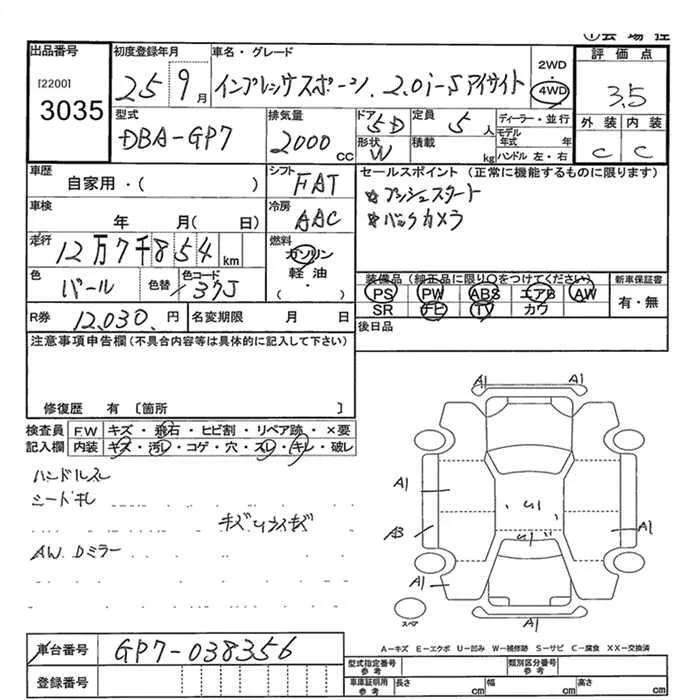 ①会場控
出品番号
[2200]
3035
初度登録年月
25 9月
車名・グレード
インプレッサスポーツ. 2.0i-Sアイサイト
2WD・4WD
評価点
3.5
外装 内装
C C
型式
DBA-GP7
排気量
2000cc
ドア 5D
形状 W
定員 5人
積載 kg
ディーラー・並行
モデル年式 年
ハンドル 左・右
車歴
自家用・( )
シフト
FAT
セールスポイント(正常に機能するものに限ります)
☆プッシュスタート
☆バックカメラ
車検
年 月(日)
冷房
AAC
走行
12万7千854km
燃料
ガソリン
軽油・
( )
色
パール
色替
色コード
37J
装備品(純正品に限り○をつけてください)
PS PW ABS エアB AW
SR ナビ TV カワ
新車保証書
有・無
R券
12,030.円
名変期限 月 日
後日品
注意事項申告欄(不具合内容等は具体的に記入して下さい)
修復歴 有[箇所 ]
検査員記入欄
F.W キズ・飛石・ヒビ割・リペア跡・×要
内装 キズ・汚レ・コゲ・穴・スレ・キレ・破レ
ハンドルスレ
シートキレ
キズ
AW Dミラー
A1 A1
A1
U1
A3
A1
A1
A1
スペア
車台番号
GP7-038356
登録番号
A-キズ E-エクボ U-凹み W-補修跡 S-サビ C-腐食 XX-交換済
型式指定番号参考
類別区分番号参考
車庫証明用参考
長さ cm
幅 cm
高さ cm